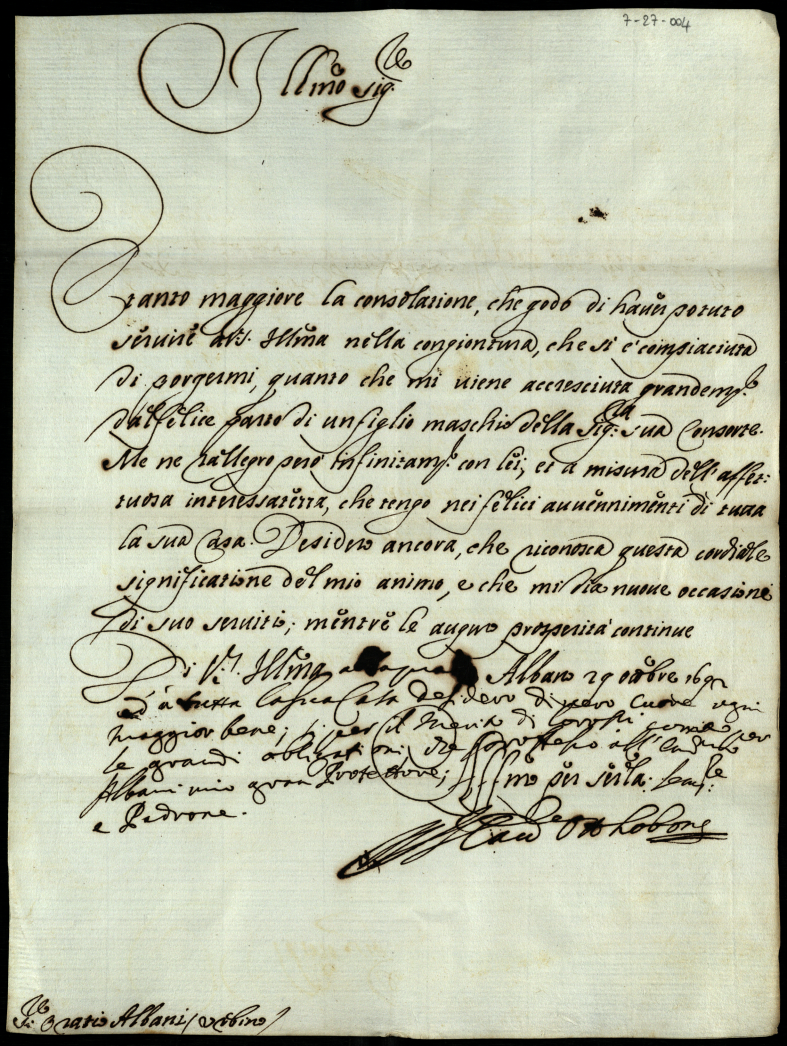 7-27-004
Illmo sig.re
È tanto maggiore la consolatione, che godo di haver potuto
servire a V.S. Illma nella congiontura, che si è compiaciuta
di porgermi, quanto che mi viene accresciuta grandem.te
dal felice parto di un figlio maschio della Sig.ra sua Consorte.
Me ne rallegro però infinitam.te con lei, et a misura dell'affet-
tuosa interessatezza, che tengo nei felici avvennimenti di tutta
la sua Casa. Desidero ancora, che riconosca questa cordiale
significatione del mio animo, e che mi dia nuove occasione
di suo servitio; mentre le auguro prosperità continue
Di V.S. Illma Albano 29 ottobre 1692
ed a tutta la sua Casa desidero di vero Cuore ogni
maggior bene, si per il Merito di come per
le grandi obligationi che professo all'
Albani mio gran Protettore,
e Padrone.
Aff.mo per ser.la sem.re
Il Card.le Otthoboni
S.re Oratio Albani (Urbino)